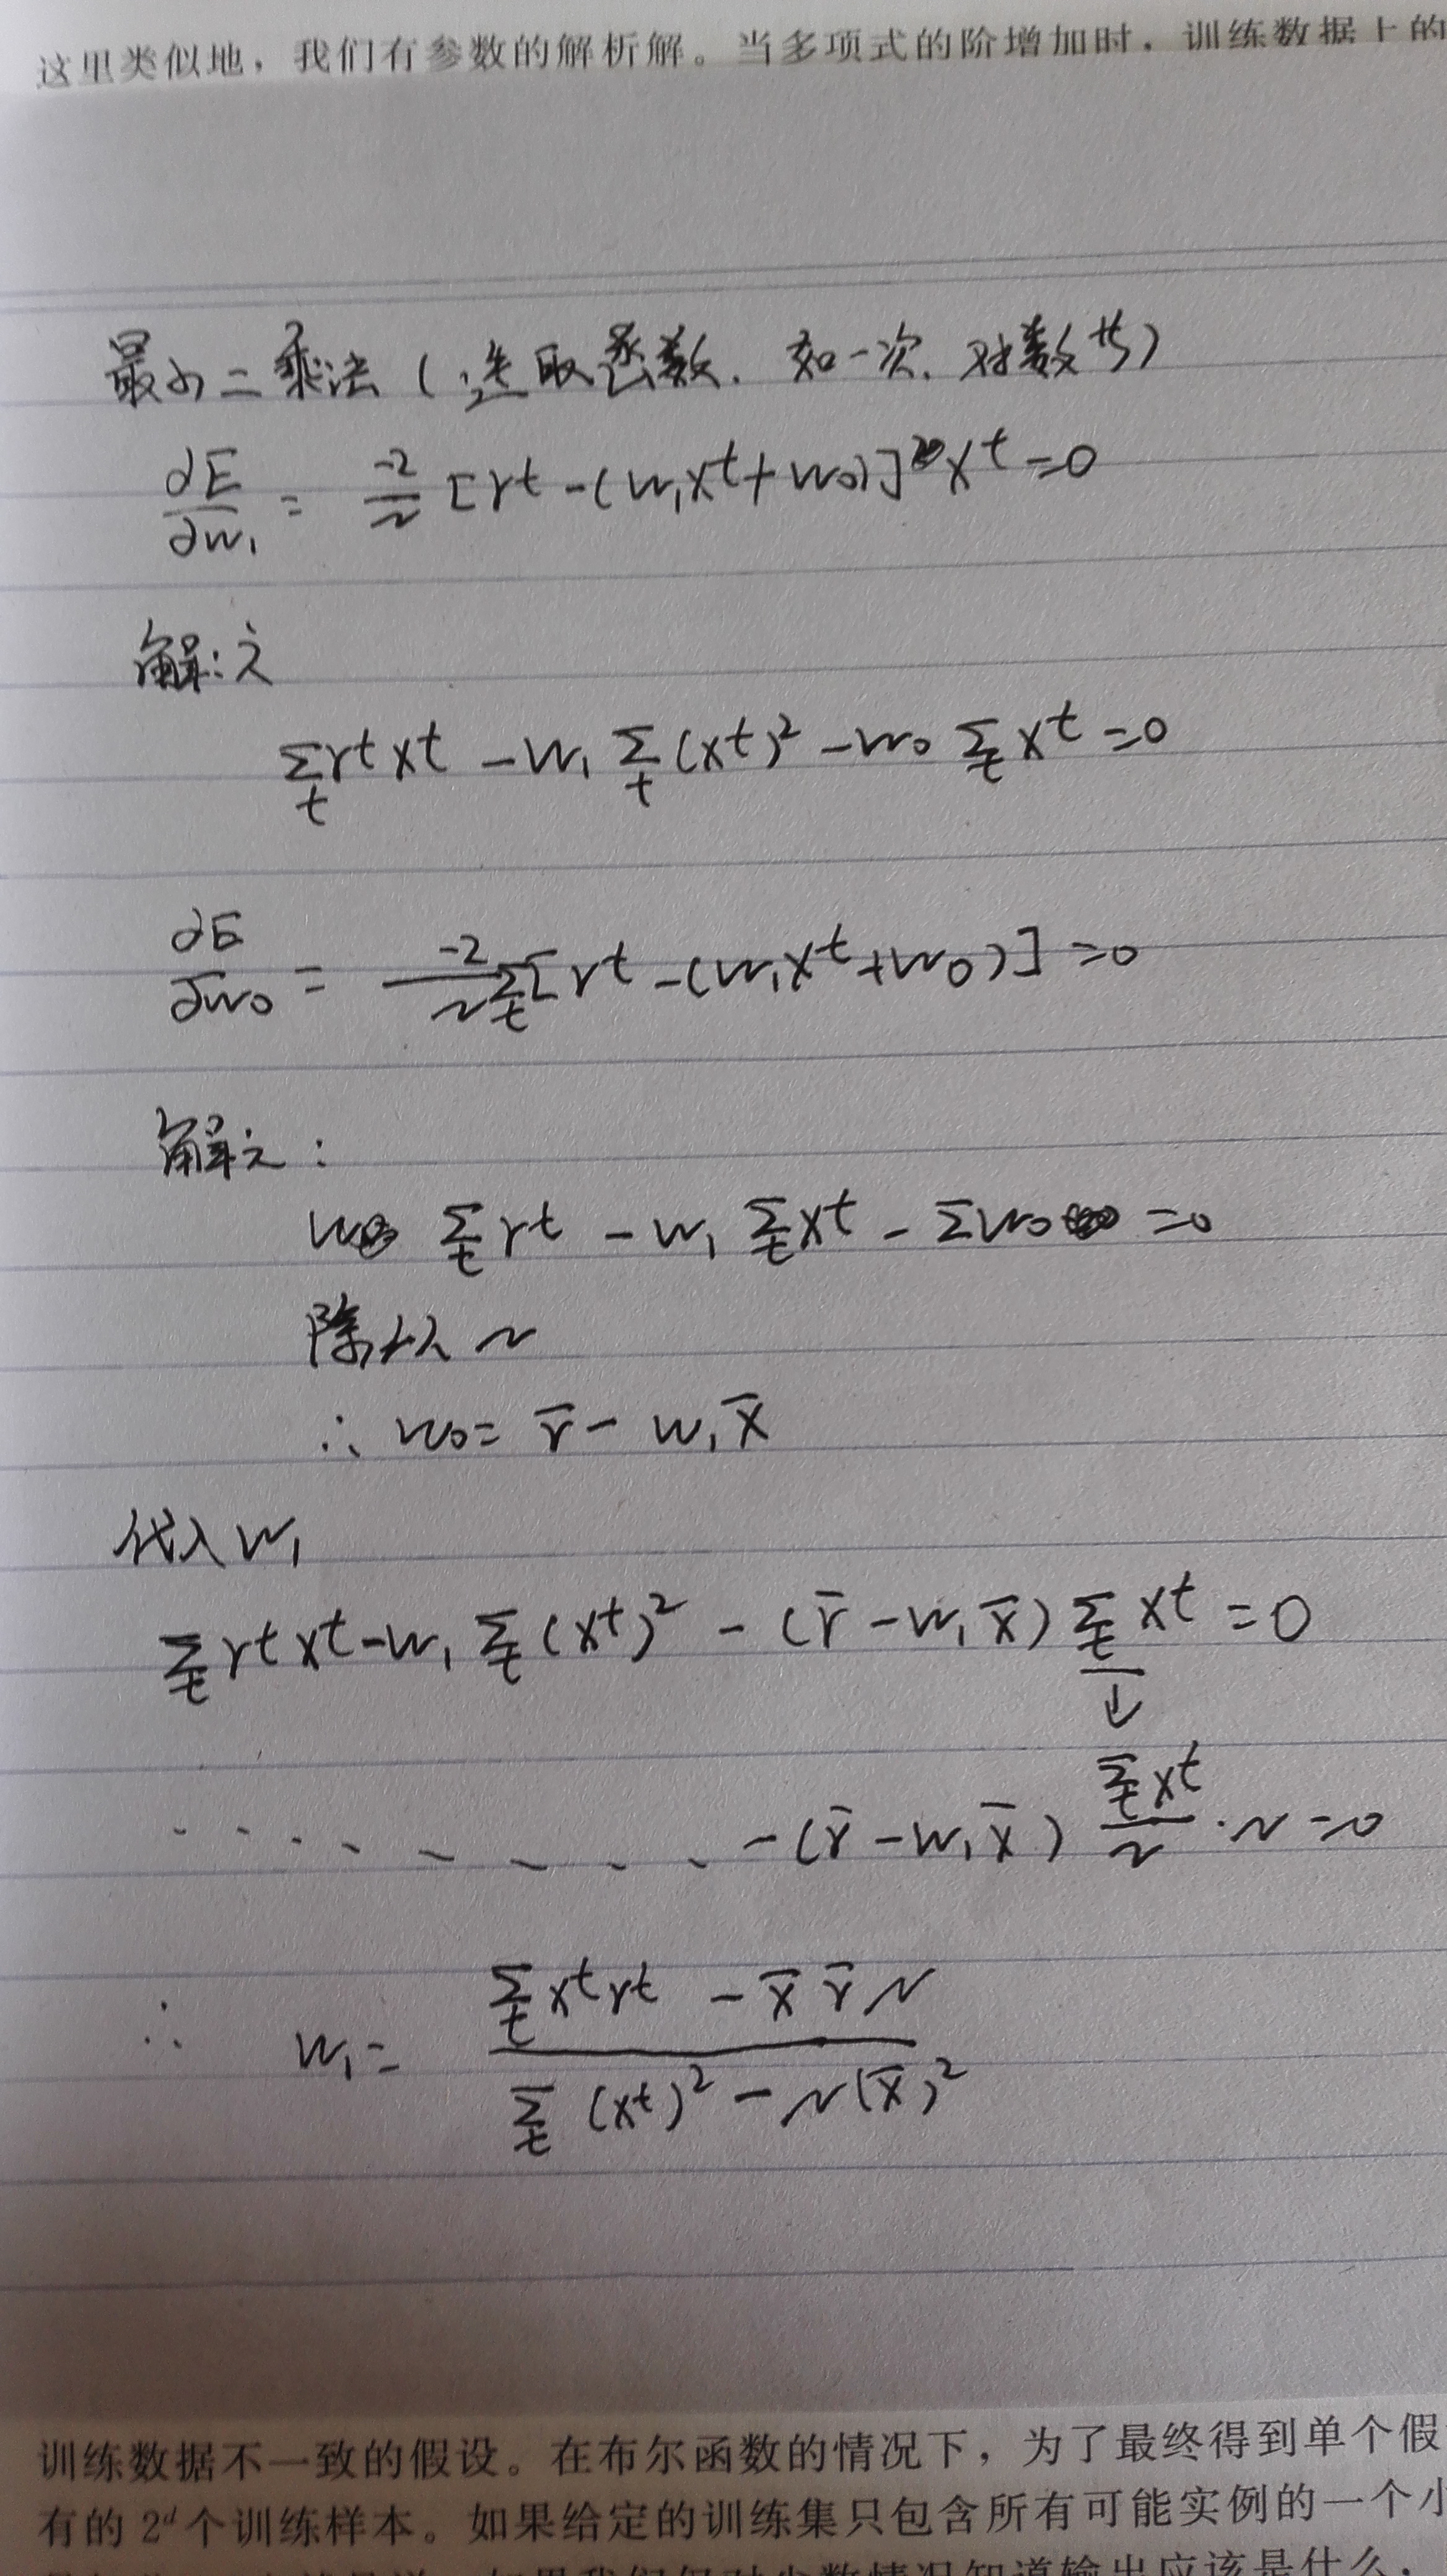 这里类似地，我们有参数的解析解。当多项式的阶增加时，训练数据上的
最小二乘法（选取函数．如一次．对数等）
∂E/∂w₁ = -2/N [rᵗ - (w₁xᵗ + w₀)] xᵗ = 0
解之
Σₜ rᵗxᵗ - w₁ Σₜ (xᵗ)² - w₀ Σₜ xᵗ = 0
∂E/∂w₀ = -2/N Σₜ [rᵗ - (w₁xᵗ + w₀)] = 0
解之：
Σₜ rᵗ - w₁ Σₜ xᵗ - Σw₀ = 0
除以 N
∴ w₀ = r̄ - w₁x̄
代入 w₁
Σₜ rᵗxᵗ - w₁ Σₜ (xᵗ)² - (r̄ - w₁x̄) Σₜ xᵗ = 0
↓
- (r̄ - w₁x̄) Σₜ xᵗ/N · N = 0
∴ w₁ = (Σₜ xᵗrᵗ - x̄ r̄ N) / (Σₜ (xᵗ)² - N(x̄)²)
训练数据不一致的假设。在布尔函数的情况下，为了最终得到单个假
有的 2ᵈ 个训练样本。如果给定的训练集只包含所有可能实例的一个小